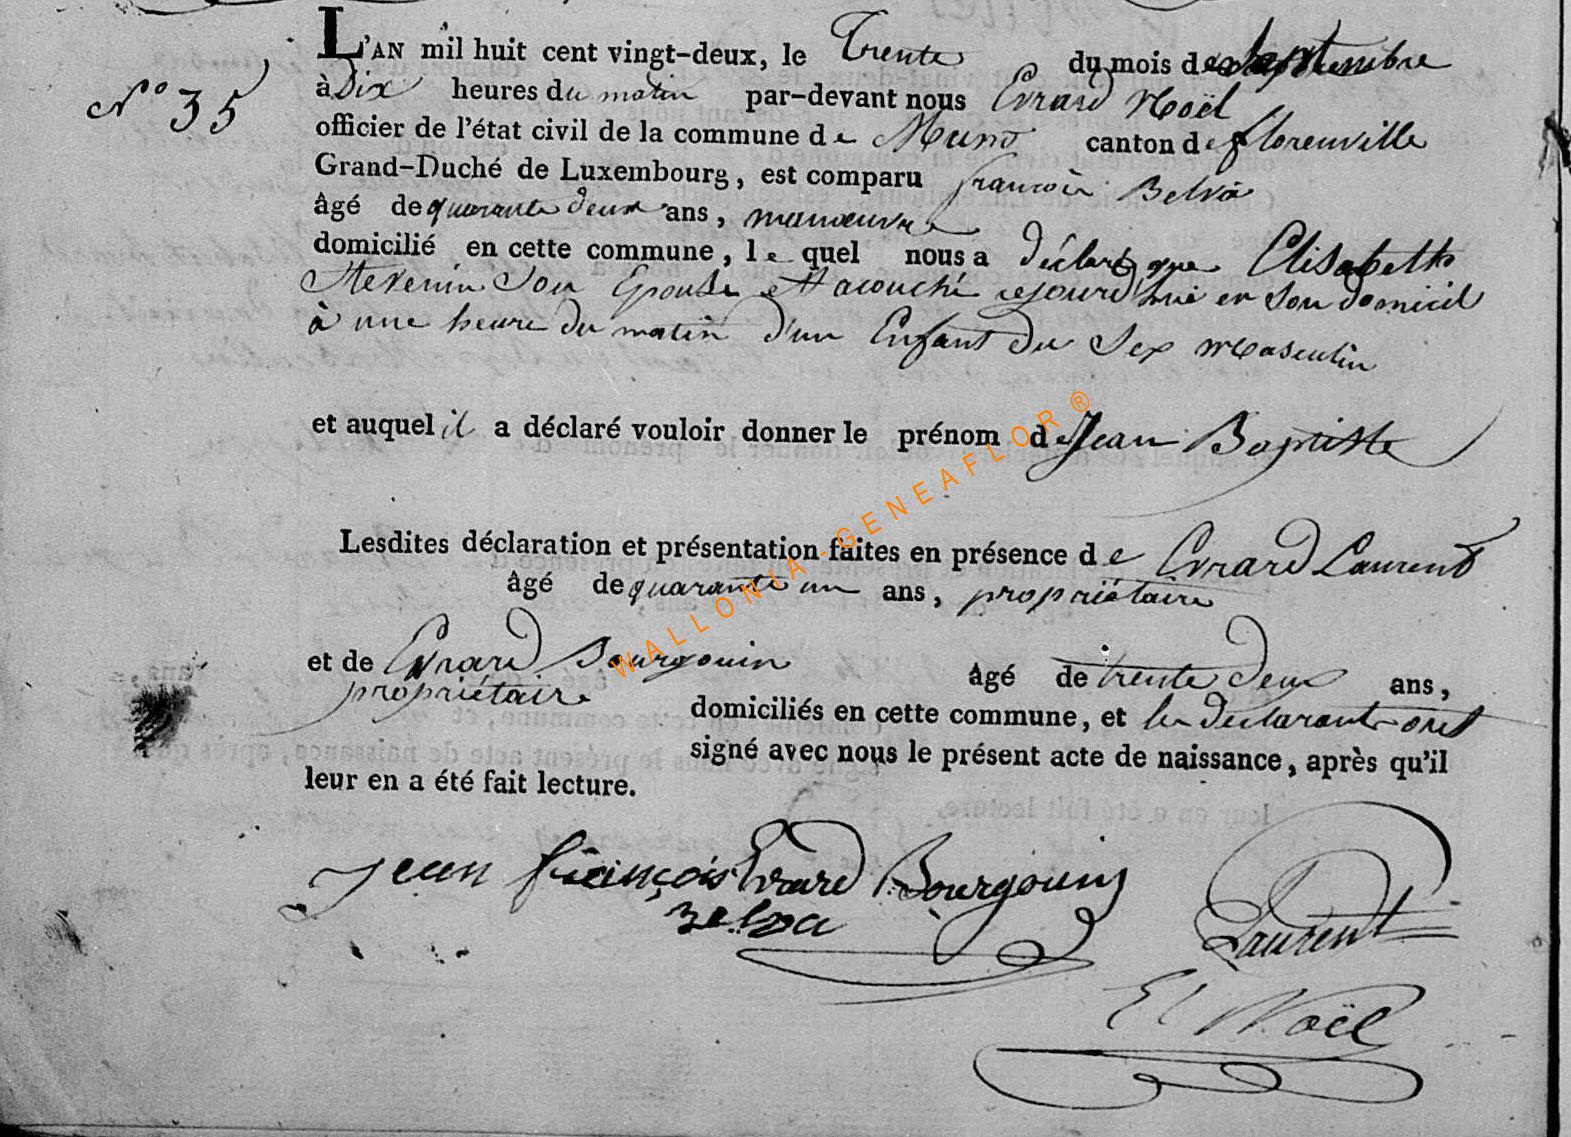 L'AN mil huit cent vingt-deux, le Trente du mois de Septembre
N° 35
à Dix heures du matin par-devant nous Evrard Noël
officier de l'état civil de la commune de Muno canton de florenville
Grand-Duché de Luxembourg, est comparu francois Belva
âgé de quarante deux ans, manœuvre
domicilié en cette commune, le quel nous a déclaré que Elisabeth
Stevenin Son Epouse est acouché cejourd'hui en Son domicil
à une heure du matin d'un Enfant du Sex Masculin
et auquel il a déclaré vouloir donner le prénom de Jean Baptiste
Lesdites déclaration et présentation faites en présence de Evrard Laurent
âgé de quarante un ans, propriétaire
et de Evrard Bourgouin âgé de trente deux ans,
propriétaire domiciliés en cette commune, et les declarant ont
signé avec nous le présent acte de naissance, après qu'il
leur en a été fait lecture.
Jean françois Evrard Bourgouin
Belva
Laurent
E Noël
WALLONIA-GENEAFLOR®